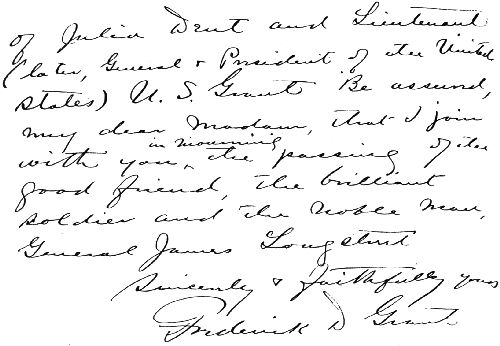 of Julia Dent and Lieutenant
(later, General & President of the United
States) U. S. Grant Be assured,
my dear Madam, that I join
in mourning
with you, ^ the passing of the
good friend, the brilliant
soldier and the noble man,
General James Longstreet
Sincerely & faithfully yours
Frederick D Grant